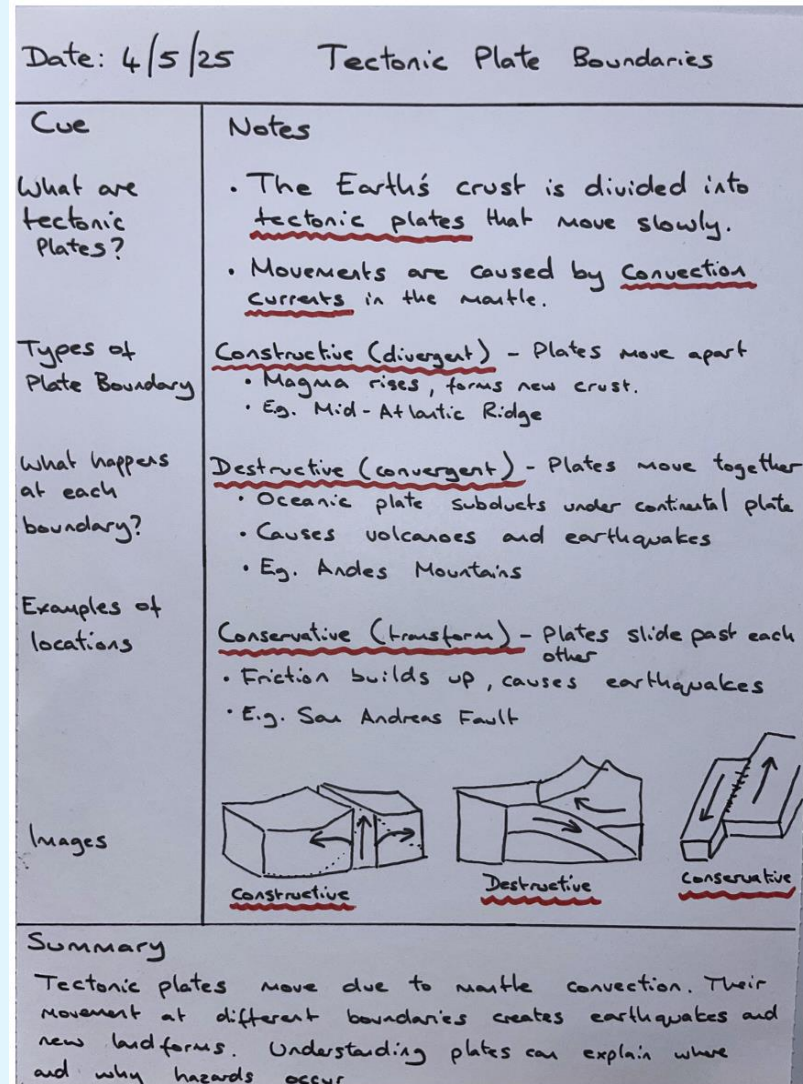 Date: 4/5/25 Tectonic Plate Boundaries
Cue
Notes
What are
tectonic
Plates?
• The Earth's crust is divided into
tectonic plates that move slowly.
• Movements are caused by Convection
Currents in the mantle.
Types of
Plate Boundary
Constructive (divergent) - Plates move apart
• Magma rises, forms new crust.
• Eg. Mid-Atlantic Ridge
What happens
at each
boundary?
Destructive (convergent) - Plates move together
• Oceanic plate subducts under continental plate
• Causes volcanoes and earthquakes
• Eg. Andes Mountains
Examples of
locations
Conservative (transform) - Plates slide past each
other
• Friction builds up, causes earthquakes
• E.g. San Andreas Fault
Images
Constructive
Destructive
Conservative
Summary
Tectonic plates move due to mantle convection. Their
movement at different boundaries creates earthquakes and
new landforms. Understanding plates can explain where
and why hazards occur